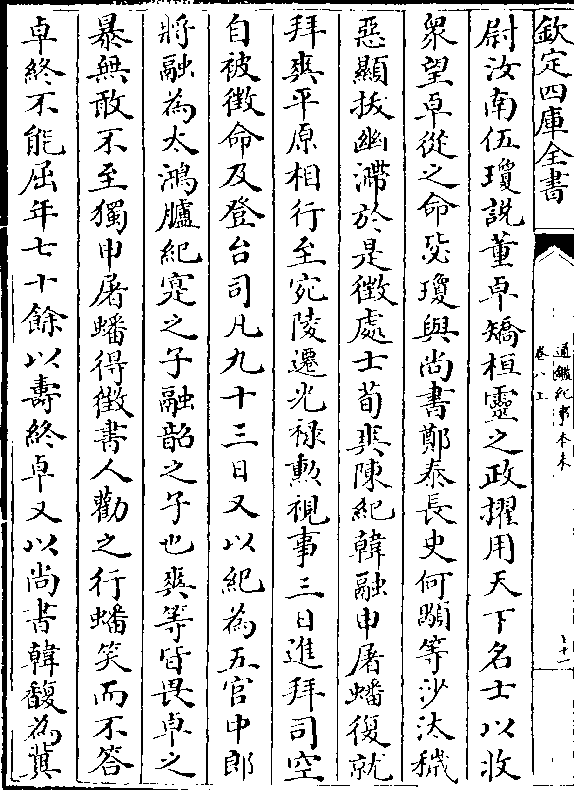 欽定四庫全書
通鑑紀事本末
卷八上
尉汝南伍瓊說董卓矯桓靈之政擢用天下名士以收
衆望卓從之命毖瓊與尚書鄭泰長史何顒等沙汰穢
惡顯拔幽滯於是徵處士荀爽陳紀韓融申屠蟠復就
拜爽平原相行至宛陵遷光禄勲視事三日進拜司空
自被徵命及登台司凡九十三日又以紀為五官中郎
將融為大鴻臚紀寔之子融韶之子也爽等皆畏卓之
暴無敢不至獨申屠蟠得徵書人勸之行蟠笑而不答
卓終不能屈年七十餘以壽終卓又以尚書韓馥為冀